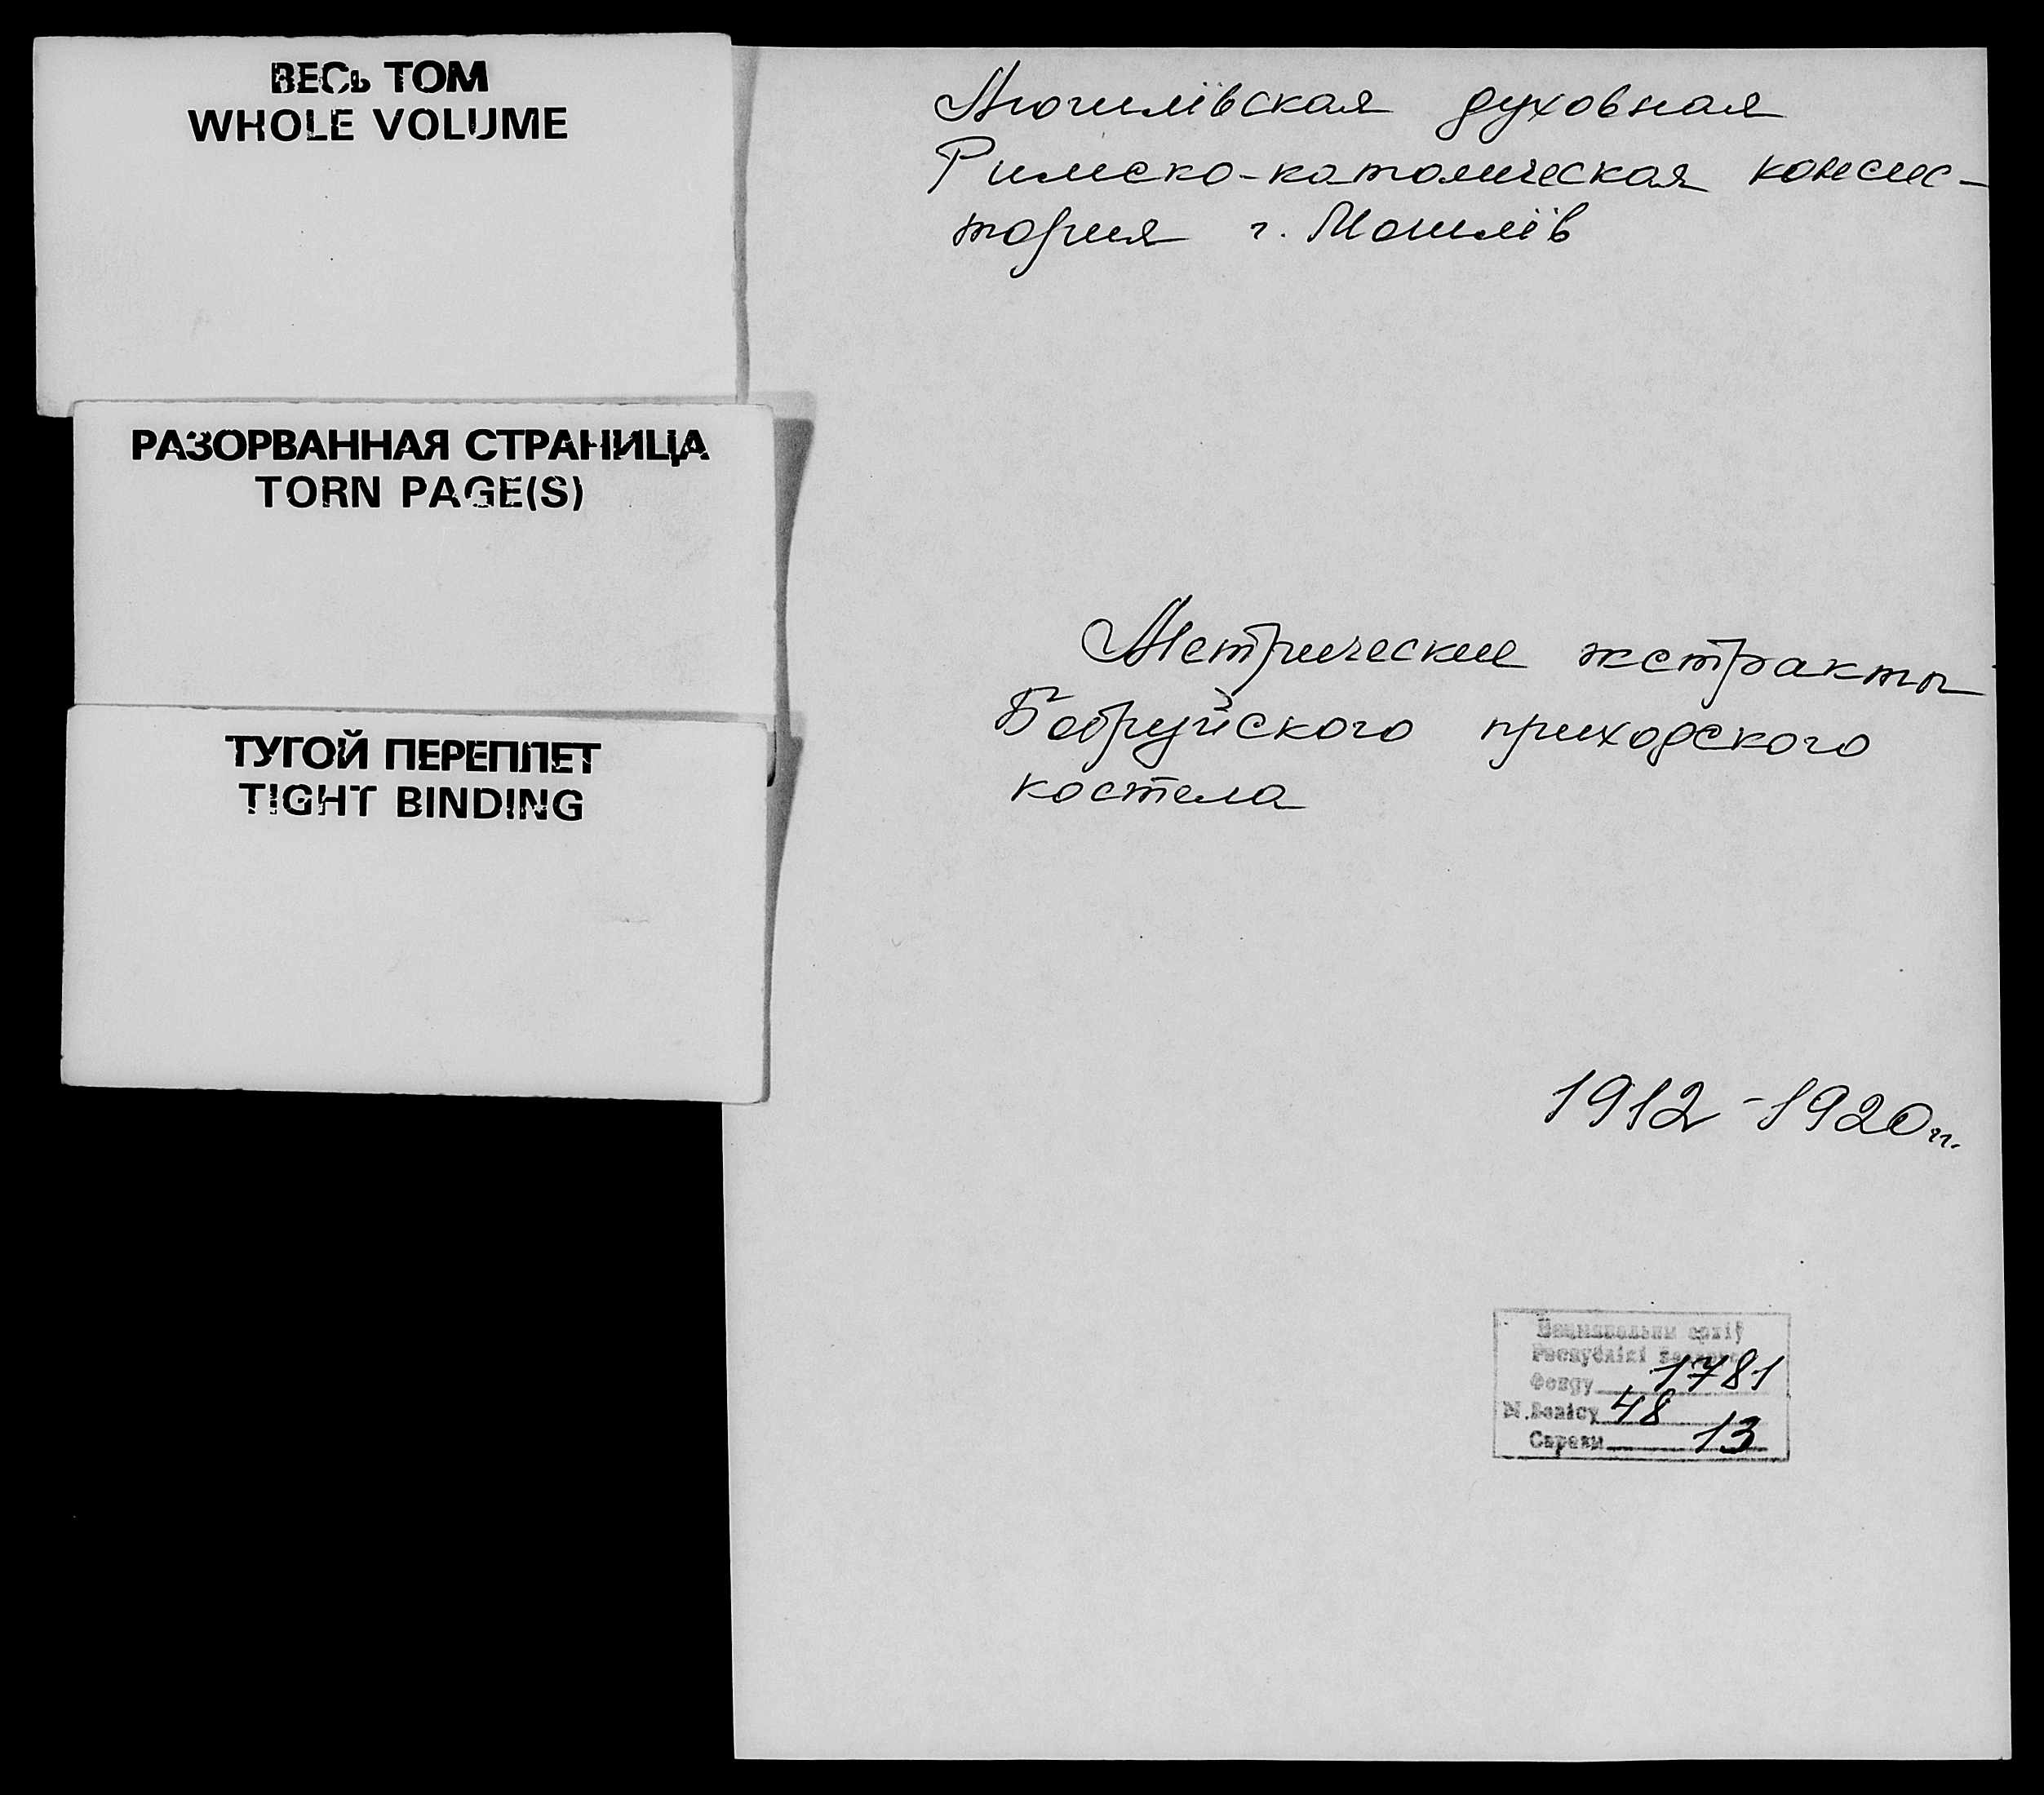 ВЕСЬ ТОМ
WHOLE VOLUME
РАЗОРВАННАЯ СТРАНИЦА
TORN PAGE(S)
ТУГОЙ ПЕРЕПЛЕТ
TIGHT BINDING
Могилёвская духовная
Римско-католическая консис-
тория г. Могилёв
Метрические экстракты
Бобруйского приходского
костела
1912-1920гг.
Нацыянальны архіў
Рэспублікі
Фонду 1781
N.Вопісу 48
Справы 13